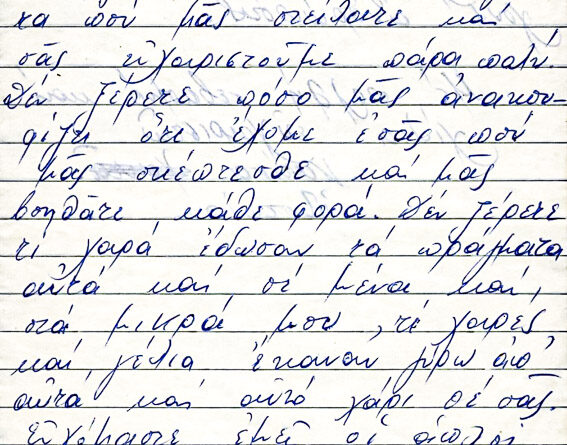 τα πού μᾶς στείλατε καί
σᾶς εὐχαριστοῦμε πάρα πολύ.
Δέν ξέρετε πόσο μᾶς ἀνακου-
φίζει ὅτι ἔχομε ἐσᾶς πού
μᾶς σκέπτεσθε καί μᾶς
βοηθᾶτε κάθε φορά. Δέν ξέρετε
τί χαρά ἔδωσαν τά πράγματα
αὐτά καί σέ μένα καί,
στά μικρά μου, τί χαρές
καί, γέλια ἔκαναν γύρω ἀπ'
αὐτά καί αὐτό χάρι σέ σᾶς.
Εὐχόμαστε ἐμεῖ οἱ